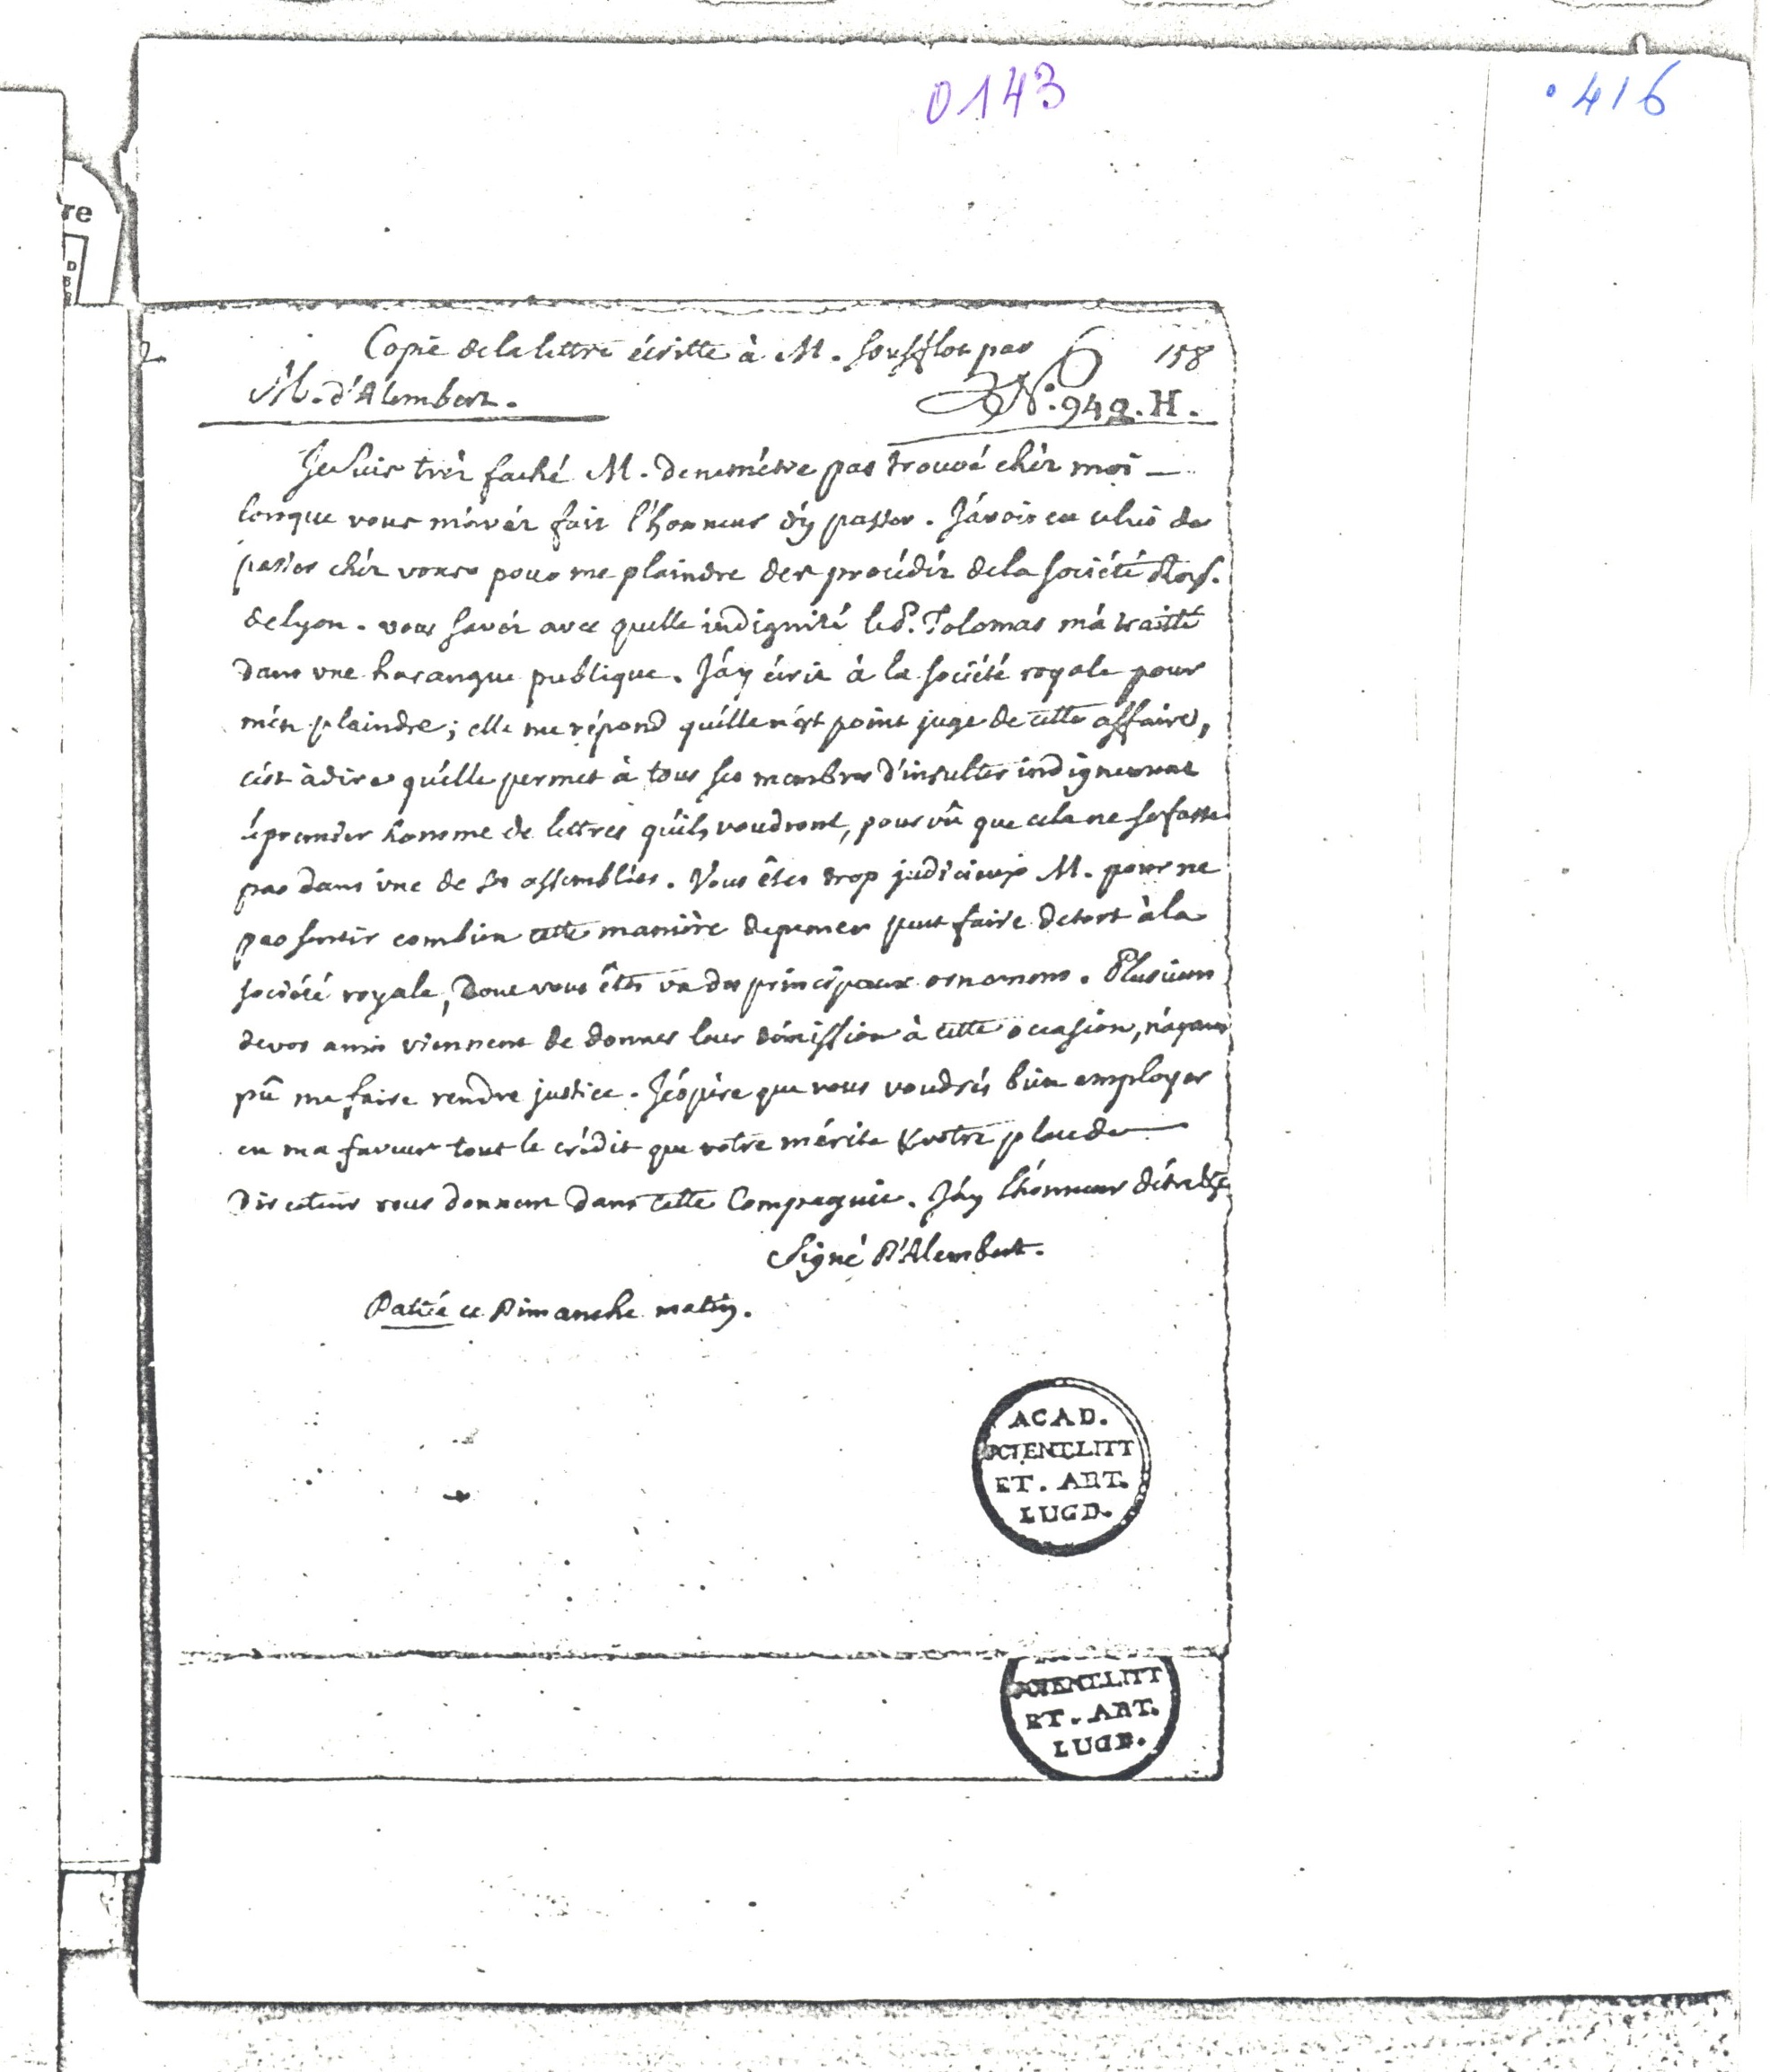 0143
416
re
Copie de la lettre écritte à M. Soufflot par
6
158
M. d'Alembert.
N°. 949. H.
Je suis trèz faché M. de ne m'être pas trouvé chèz moi
lorsque vous m'avéz fait l'honneur d'y passer. J'avois eu celui de
passer chéz vous pour me plaindre des procédéz de la société Roy.
de lyon. vous savéz avec quelle indignité le P. Tolomas m'a traitté
dans une harangue publique. J'ay écrit à la société royale pour
m'en plaindre; elle me répond qu'elle n'est point juge de cette affaire,
c'est à dire qu'elle permet à tous ses membres d'insulter indignement
le premier homme de lettres qu'ils voudront, pourvû que cela ne se fasse
pas dans une de ses assemblées. Vous êtes trop judicieux M. pour ne
pas sentir combien cette manière de penser peut faire de tort à la
société royale, dont vous êtes un des principaux ornemens. Plusieurs
de vos amis viennent de donner leur démission à cette occasion, n'ayant
pû me faire rendre justice. J'espère que vous voudrés bien employer
en ma faveur tout le crédit que votre mérite & votre place de
Directeur vous donnent dans cette Compagnie. J'ay l'honneur d'être &c
Signé D'Alembert.
Datté ce Dimanche matin.
ACAD.
SCIENT.LITT
ET. ART.
LUGD.
SCIENT.LITT
ET. ART.
LUGD.